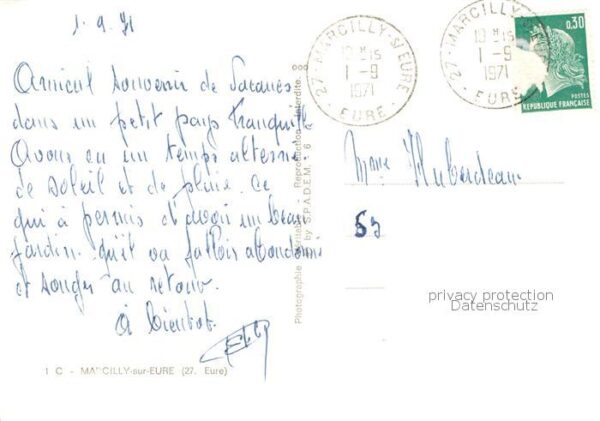 1.9.71
Amical souvenir de vacances
dans un petit pays tranquille
Avons eu un temps alterné
de soleil et de pluie. ce
qui à permis d'avoir un beau
jardin. qu'il va falloir abandonner
et songer au retour.
à bientot.
1 C - MARCILLY-sur-EURE (27. Eure)
Photographie véritable - Reproduction interdite.
by S.P.A.D.E.M. - 6
27 - MARCILLY-S/EURE
19 H 15
1 - 9
1971
EURE
27 - MARCILLY-S/EURE
19 H 15
1 - 9
1971
EURE
0,30
POSTES
REPUBLIQUE FRANÇAISE
Mme Huberdeau
privacy protection
Datenschutz